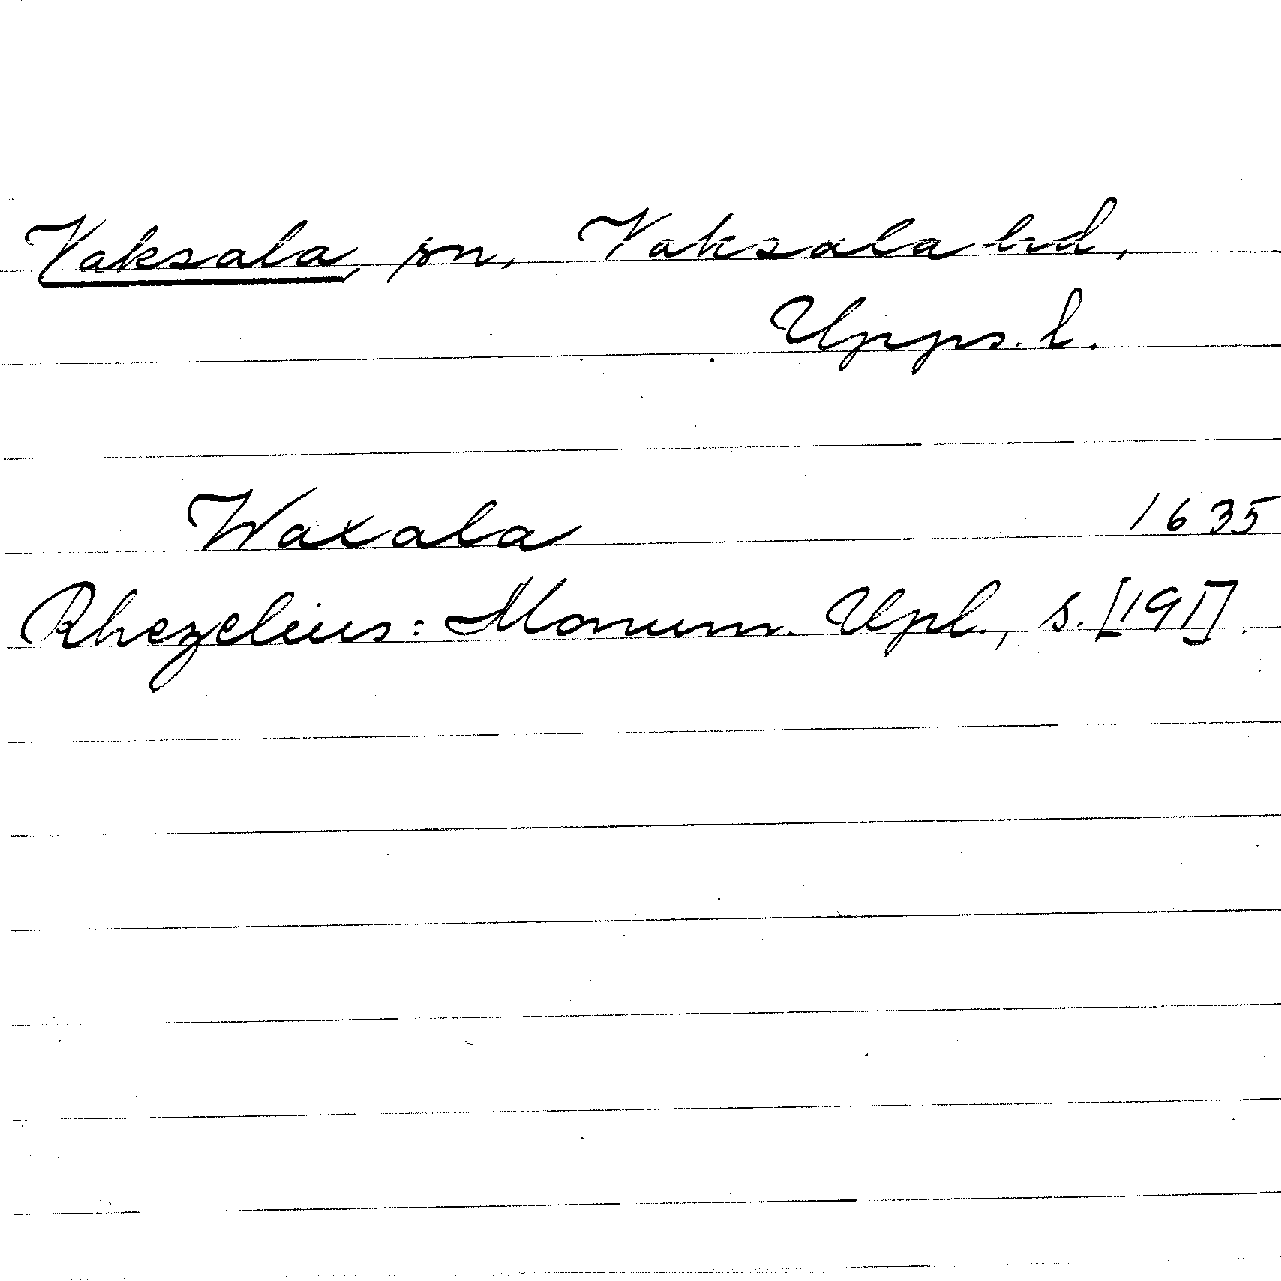 Vaksala, sn, Vaksala hd,
Upps. l.
Waxala 1635
Rhezelius: Monum. Upl., s. [191].